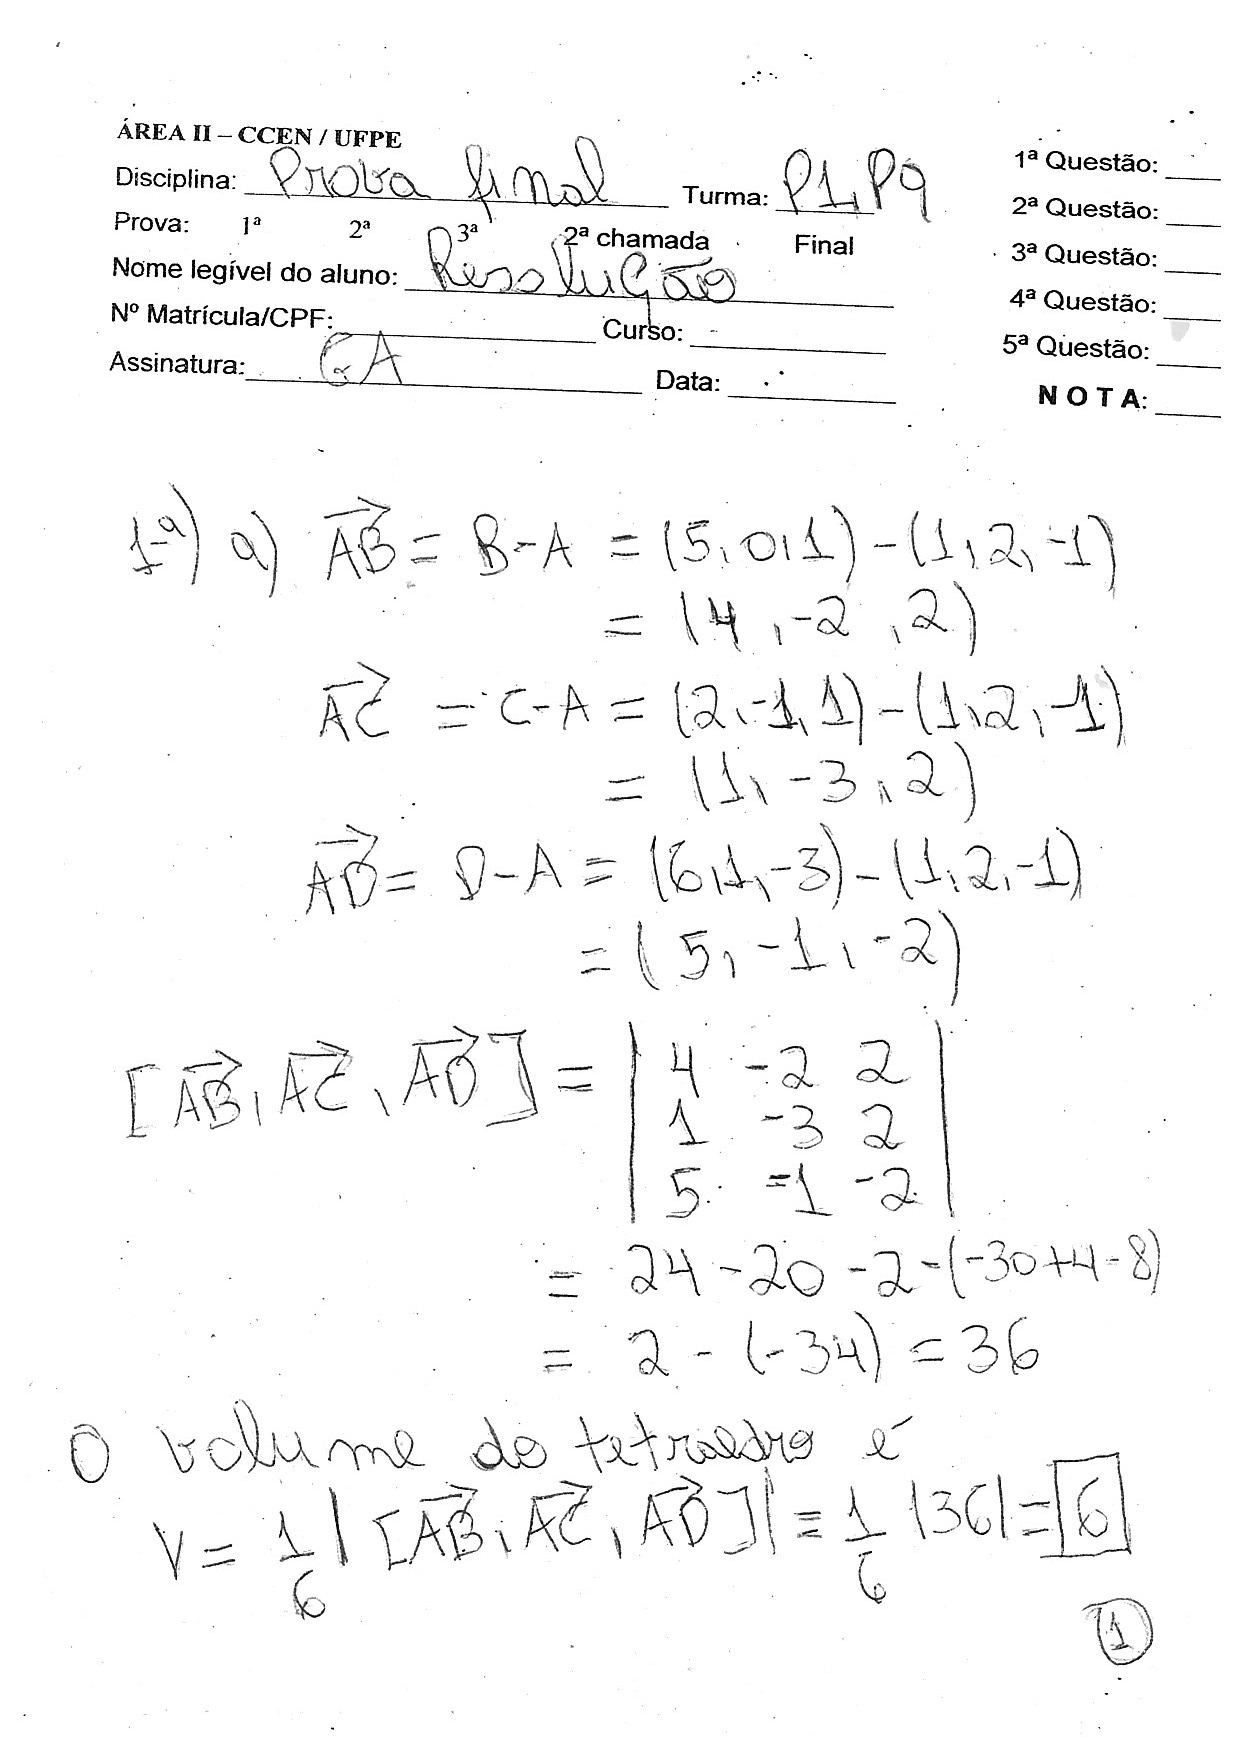 ÁREA II – CCEN / UFPE
Disciplina: Prova final Turma: P1, P9
Prova: 1ª 2ª 3ª 2ª chamada Final
Nome legível do aluno: Resolução
Nº Matrícula/CPF: Curso:
Assinatura: GA Data:
1ª Questão:
2ª Questão:
3ª Questão:
4ª Questão:
5ª Questão:
N O T A:
1ª) a) AB = B-A = (5,0,1) - (1,2,-1)
= (4,-2,2)
AC = C-A = (2,-1,1) - (1,2,-1)
= (1,-3,2)
AD = D-A = (6,1,-3) - (1,2,-1)
= (5,-1,-2)
[AB, AC, AD] = | 4 -2 2 |
| 1 -3 2 |
| 5 -1 -2 |
= 24 - 20 - 2 - (-30+4-8)
= 2 - (-34) = 36
O volume do tetraedro é
V = 1/6 | [AB, AC, AD] | = 1/6 |36| = 6
1